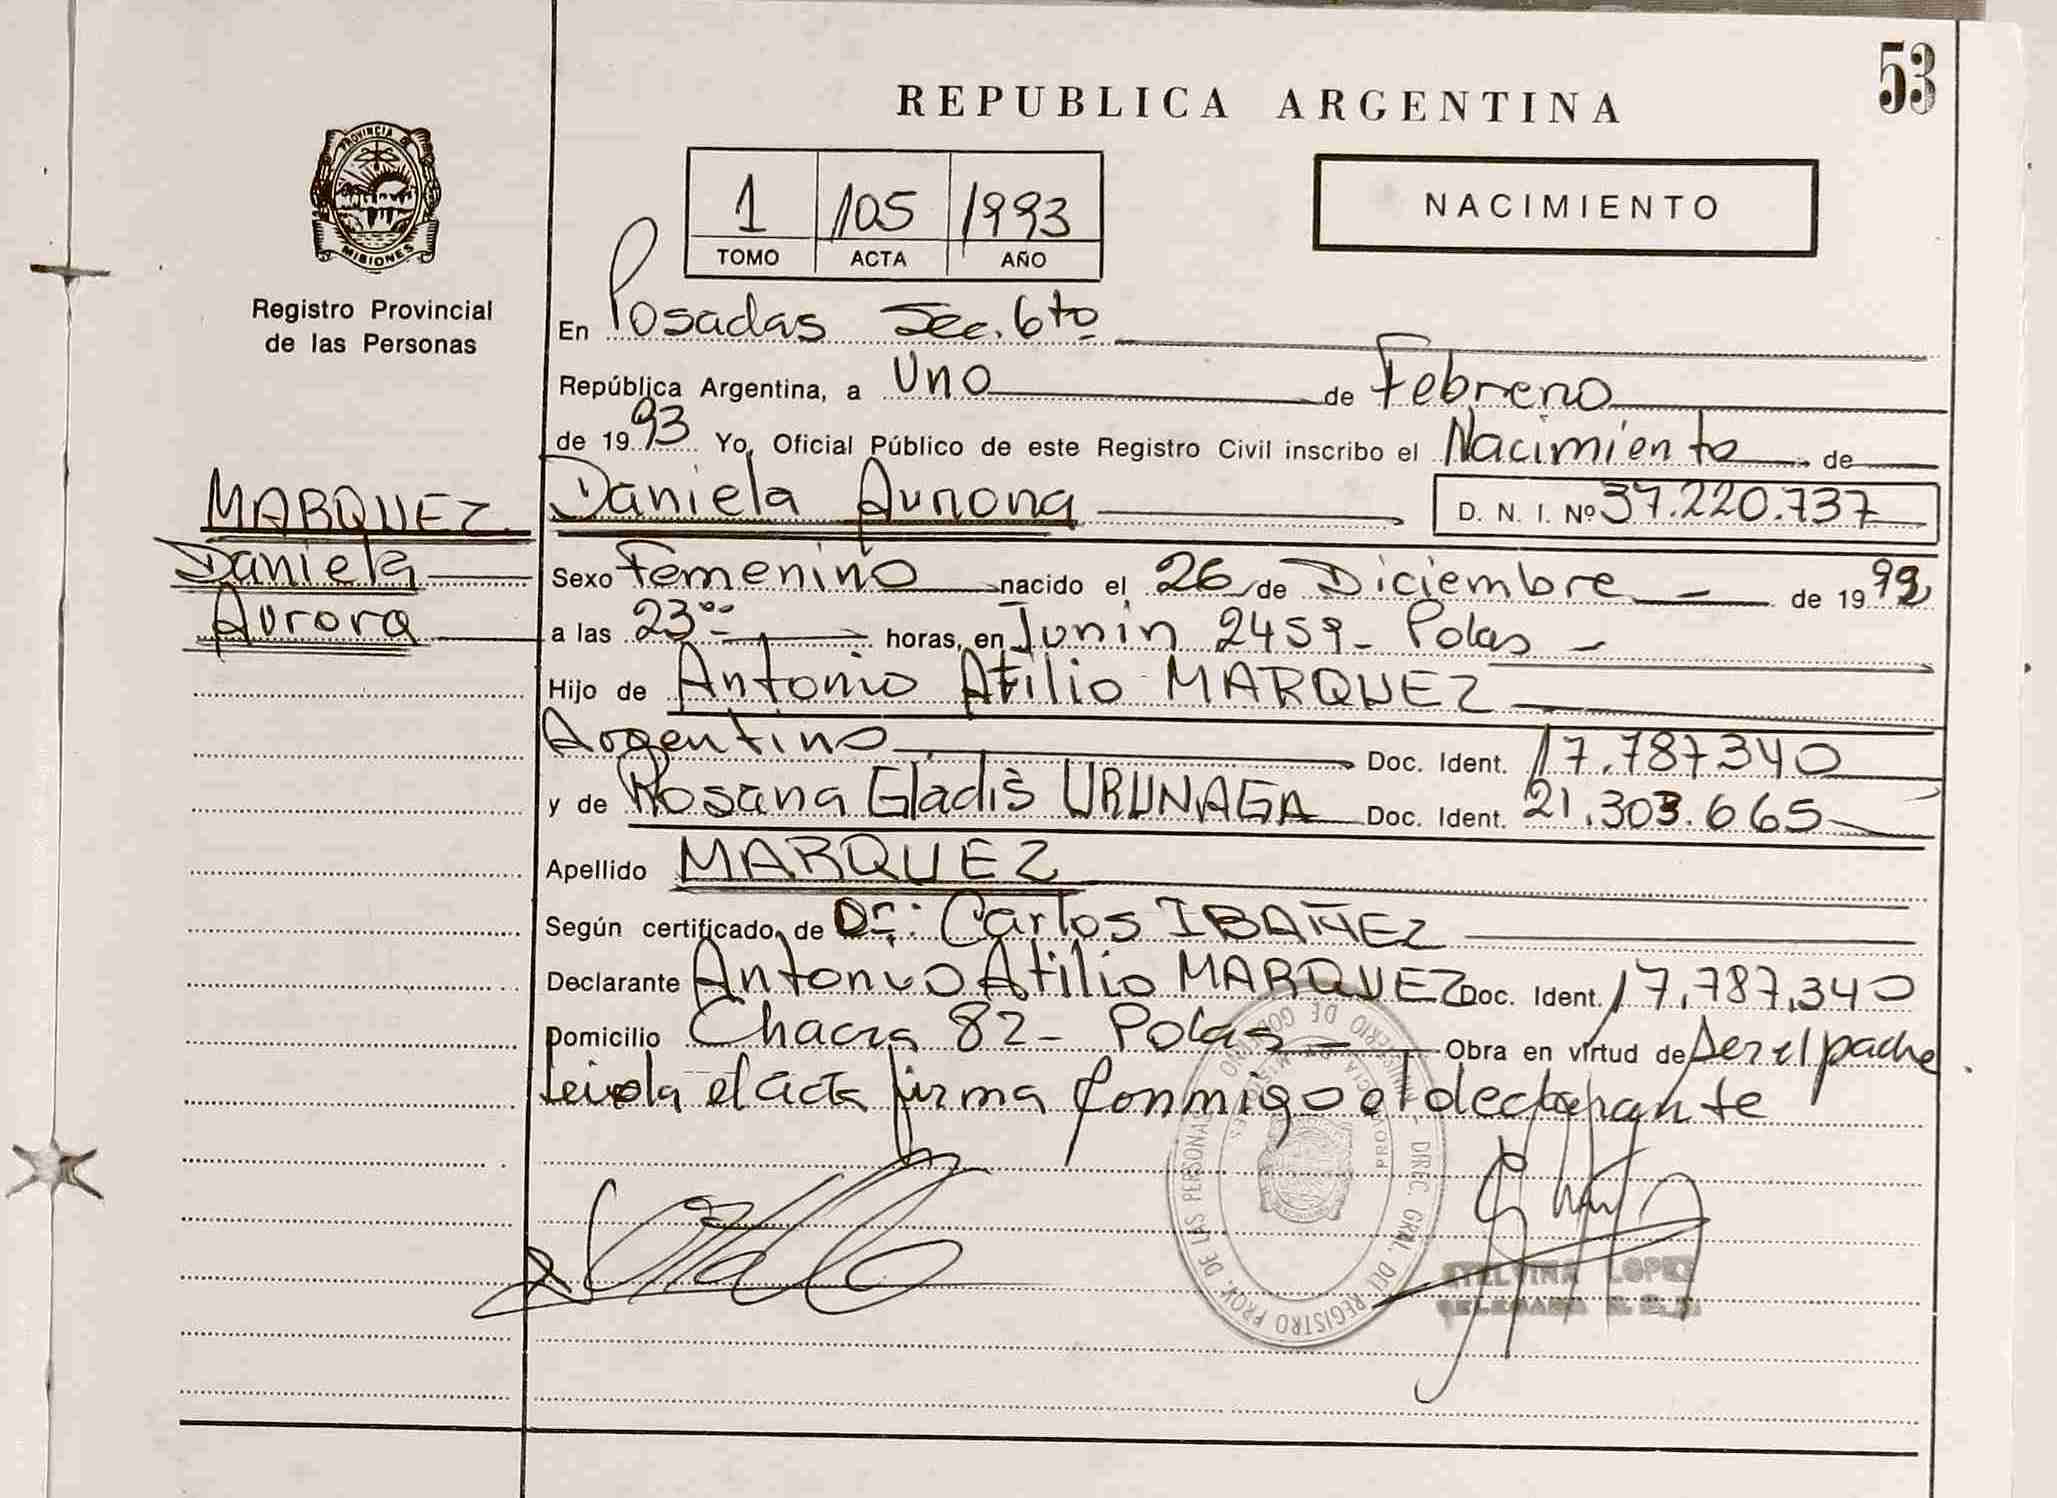 53
REPUBLICA ARGENTINA
PROVINCIA DE MISIONES
Registro Provincial
de las Personas
1 105 1993
TOMO ACTA AÑO
NACIMIENTO
En Posadas Sec. 6to
República Argentina, a Uno de Febrero
de 1993 Yo, Oficial Público de este Registro Civil inscribo el Nacimiento de
MARQUEZ
Daniela
Aurora
Daniela Aurora D. N. I. Nº 37.220.737
Sexo Femenino nacido el 26 de Diciembre de 1992
a las 23⁰⁰ horas, en Junin 2459 - Pdas -
Hijo de Antonio Atilio MARQUEZ
Argentino Doc. Ident. 17.787.340
y de Rosana Gladis URUNAGA Doc. Ident. 21.303.665
Apellido MARQUEZ
Según certificado de Dr: Carlos IBAÑEZ
Declarante Antonio Atilio MARQUEZ Doc. Ident. 17.787.340
Domicilio Chacra 82 - Pdas - Obra en virtud de ser el padre
Leida el acta firma conmigo el declarante
MINISTERIO DE GOBIERNO - DIREC. GRAL. DEL REGISTRO PROV. DE LAS PERSONAS
PROVINCIA DE MISIONES
ETELVINA LOPEZ
DELEGADA